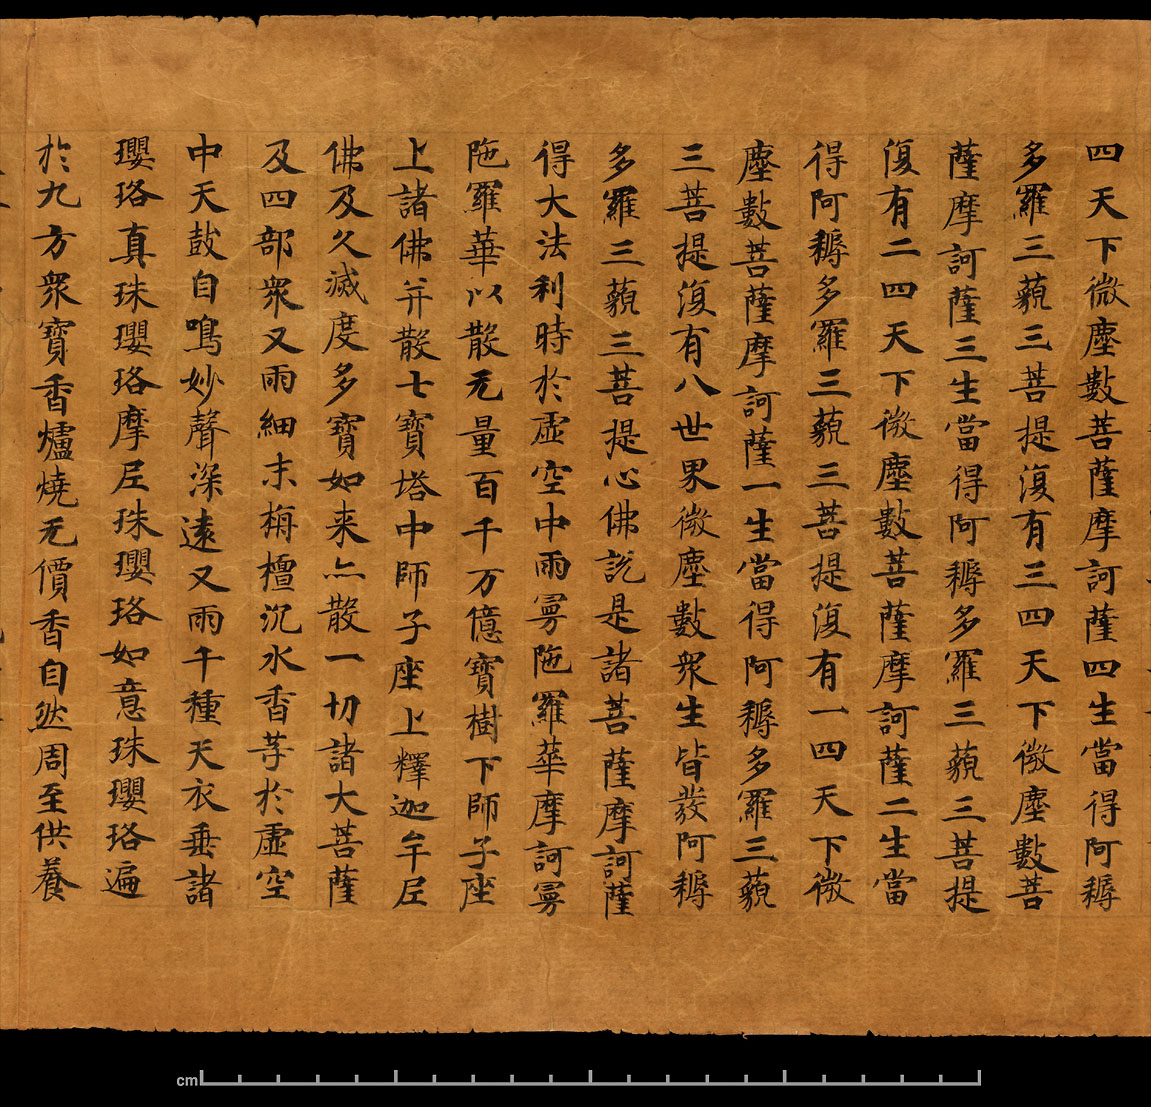 四天下微塵數菩薩摩訶薩四生當得阿耨
多羅三藐三菩提復有三四天下微塵數菩
薩摩訶薩三生當得阿耨多羅三藐三菩提
復有二四天下微塵數菩薩摩訶薩二生當
得阿耨多羅三藐三菩提復有一四天下微
塵數菩薩摩訶薩一生當得阿耨多羅三藐
三菩提復有八世界微塵數衆生皆發阿耨
多羅三藐三菩提心佛說是諸菩薩摩訶薩
得大法利時於虛空中雨曼陁羅華摩訶曼
陁羅華以散无量百千万億寶樹下師子座
上諸佛并散七寶塔中師子座上釋迦牟尼
佛及久滅度多寶如来亦散一切諸大菩薩
及四部衆又雨細末栴檀沉水香等於虛空
中天鼓自鳴妙聲深遠又雨千種天衣垂諸
瓔珞真珠瓔珞摩尼珠瓔珞如意珠瓔珞遍
於九方衆寶香爐燒无價香自然周至供養